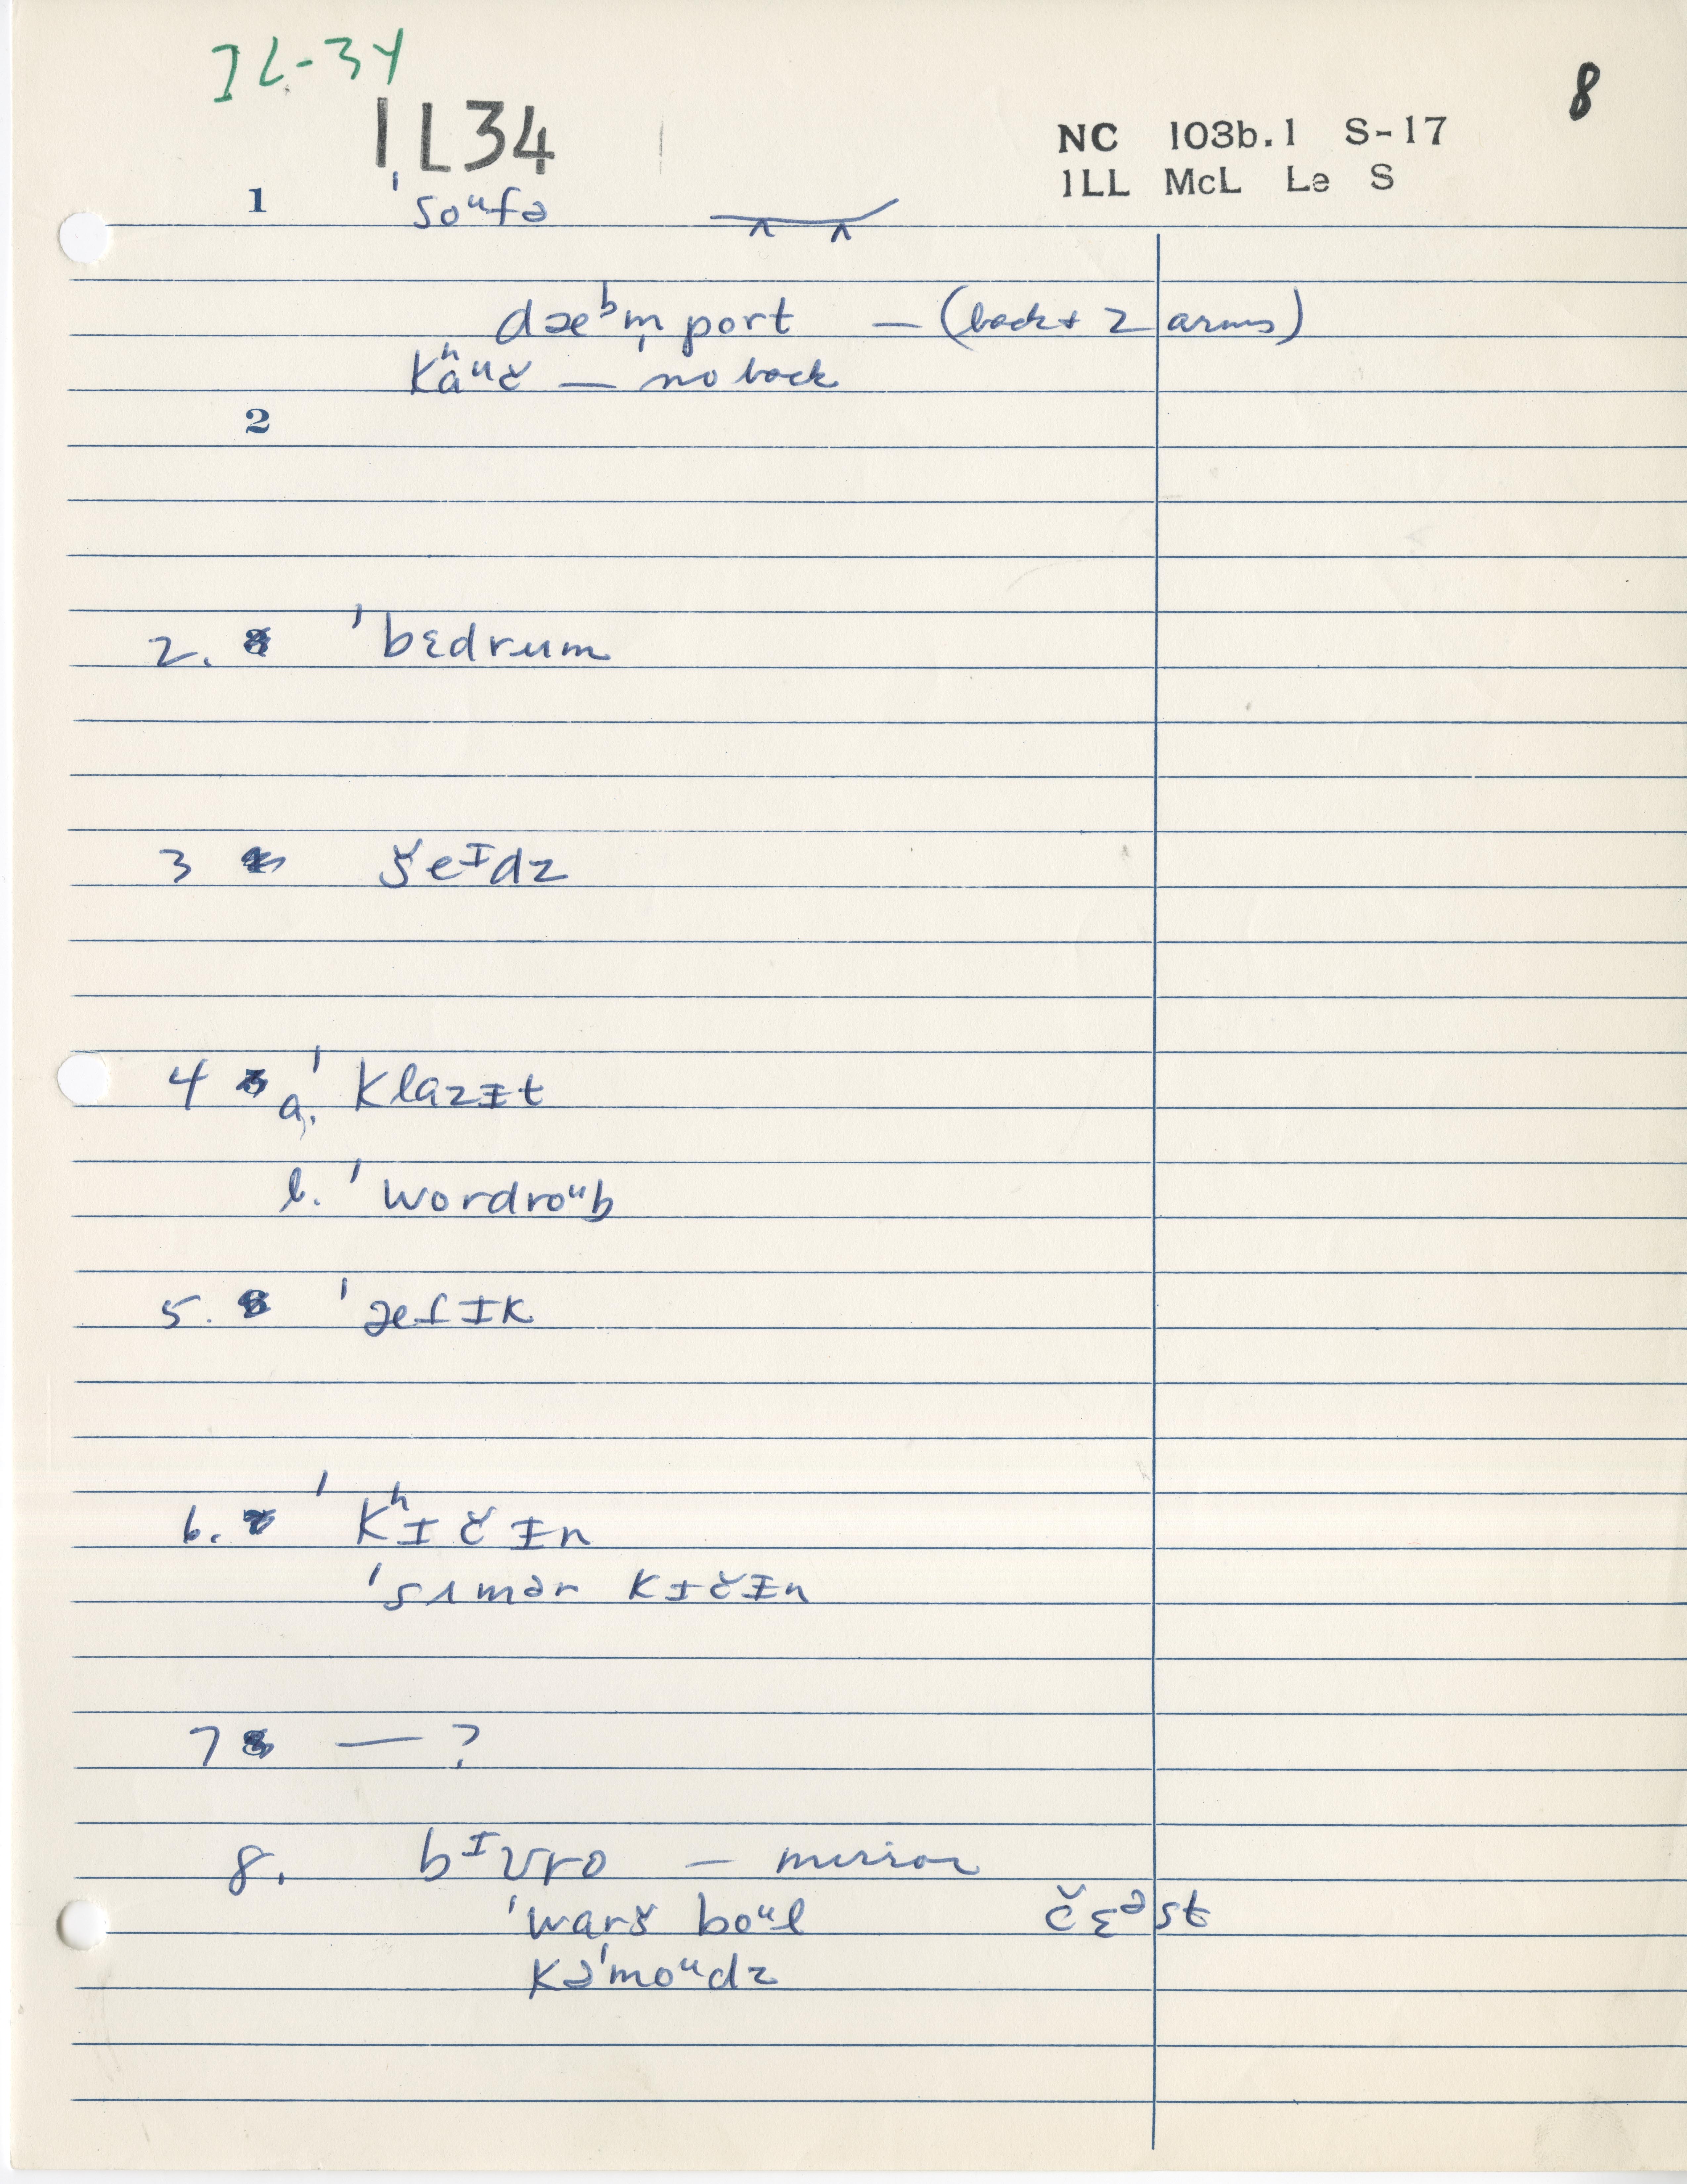 IL-34
1L34
8
NC 103b.1 S-17
1LL McL Le S
1 ˈsoᵘfə
dæᵇm̩port — (back + 2 arms)
Kʰaᵘč — no back
2
2. ˈbɛdrum
3 šeᴵdz
4 a. ˈKlazɪt
b. ˈwordroᵘb
5. ˈæfɪK
6. ˈKʰɪčɪn
ˈsʌmər Kɪčɪn
7 — ?
8. bᴵʊro — mirror
ˈwarš boᵘl čɛᵊst
Kəˈmoᵘdz